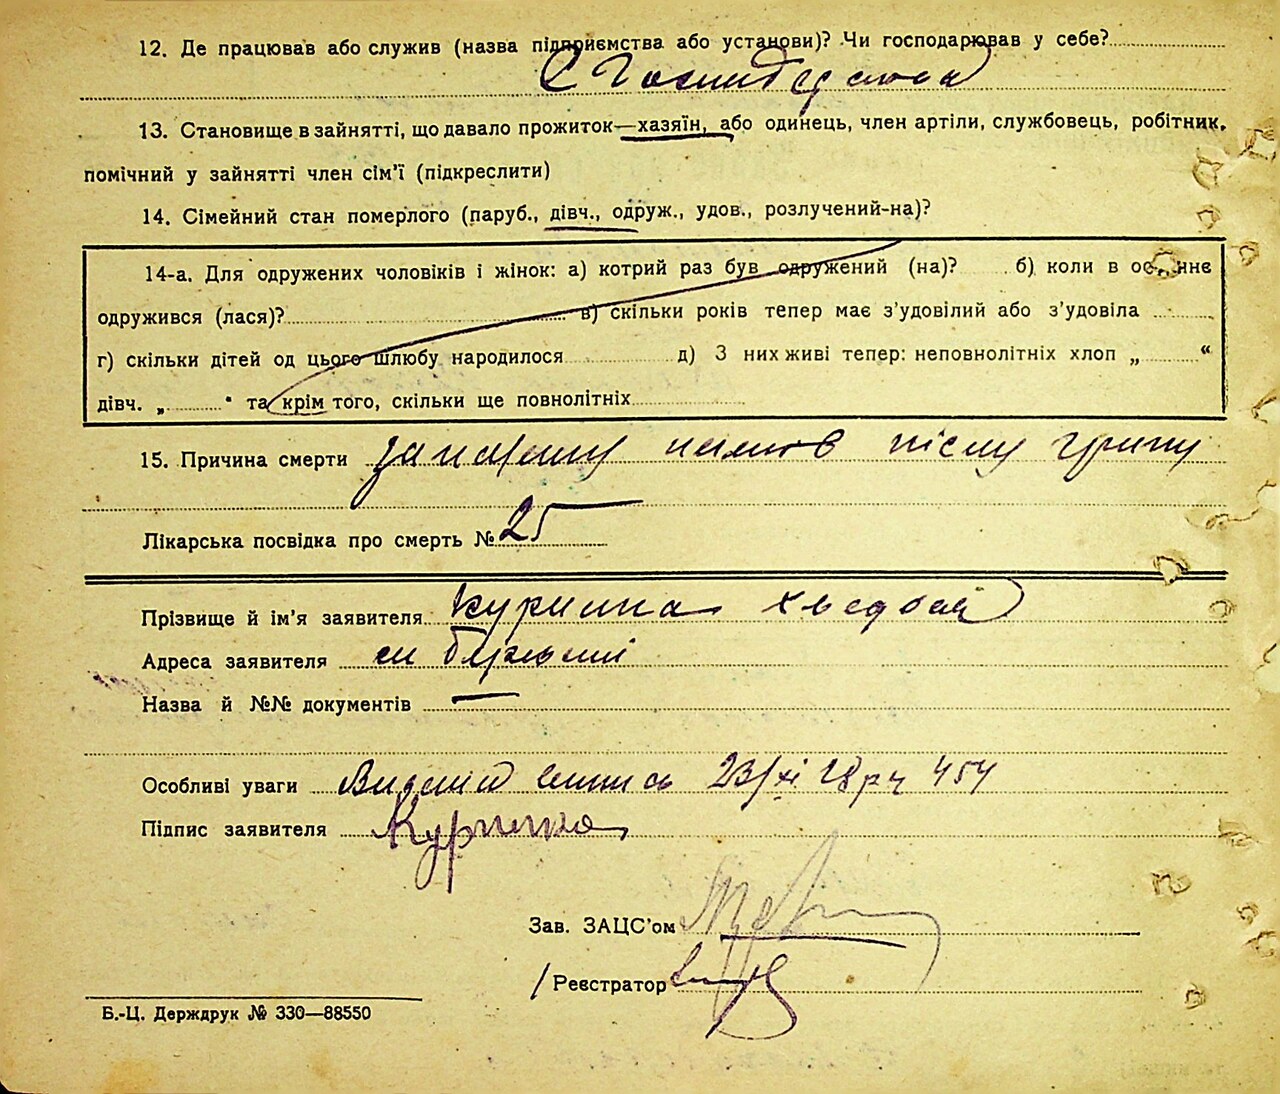 12. Де працював або служив (назва підприємства або установи)? Чи господарював у себе?
13. Становище в зайнятті, що давало прожиток—хазяїн, або одинець, член артіли, службовець, робітник,
помічний у зайнятті член сім'ї (підкреслити)
14. Сімейний стан померлого (паруб., дівч., одруж., удов., розлучений-на)?
14-а. Для одружених чоловіків і жінок: а) котрий раз був одружений (на)? б) коли в останнє
одружився (лася)? в) скільки років тепер має з'удовілий або з'удовіла
г) скільки дітей од цього шлюбу народилося д) З них живі тепер: неповнолітніх хлоп „ “
дівч. „ “ та крім того, скільки ще повнолітніх
15. Причина смерти запалення після грипу
Лікарська посвідка про смерть № 25
Прізвище й ім'я заявителя
Адреса заявителя
Назва й №№ документів —
Особливі уваги 23/XI 454
Підпис заявителя
Зав. ЗАЦС'ом
/Реєстратор
Б.-Ц. Держдрук № 330—88550